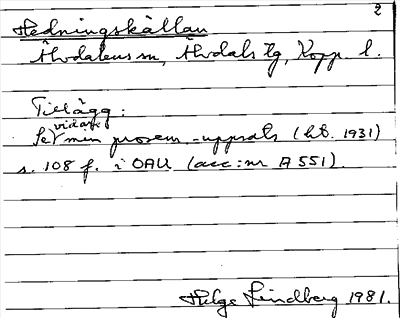 2
Hedningskällan
Älvdalens sn, Älvdals tg, Kopp. l.
Tillägg:
vidare
Se min prosem.-uppsats (ht. 1931)
s. 108 f. i OAU (acc:nr A 551).
Helge Lindberg 1981.